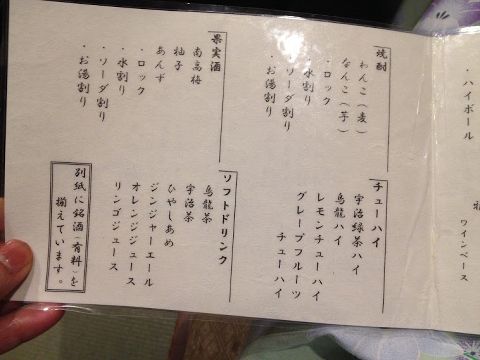 ・ハイボール
ワインベース
焼酎
わんこ(麦)
なんこ(芋)
・ロック
・水割り
・ソーダ割り
・お湯割り
チューハイ
宇治緑茶ハイ
烏龍ハイ
レモンチューハイ
グレープフルーツ
チューハイ
果実酒
南高梅
柚子
あんず
・ロック
・水割り
・ソーダ割り
・お湯割り
ソフトドリンク
烏龍茶
宇治茶
ひやしあめ
ジンジャーエール
オレンジジュース
リンゴジュース
別紙に銘酒(有料)を
揃えています。